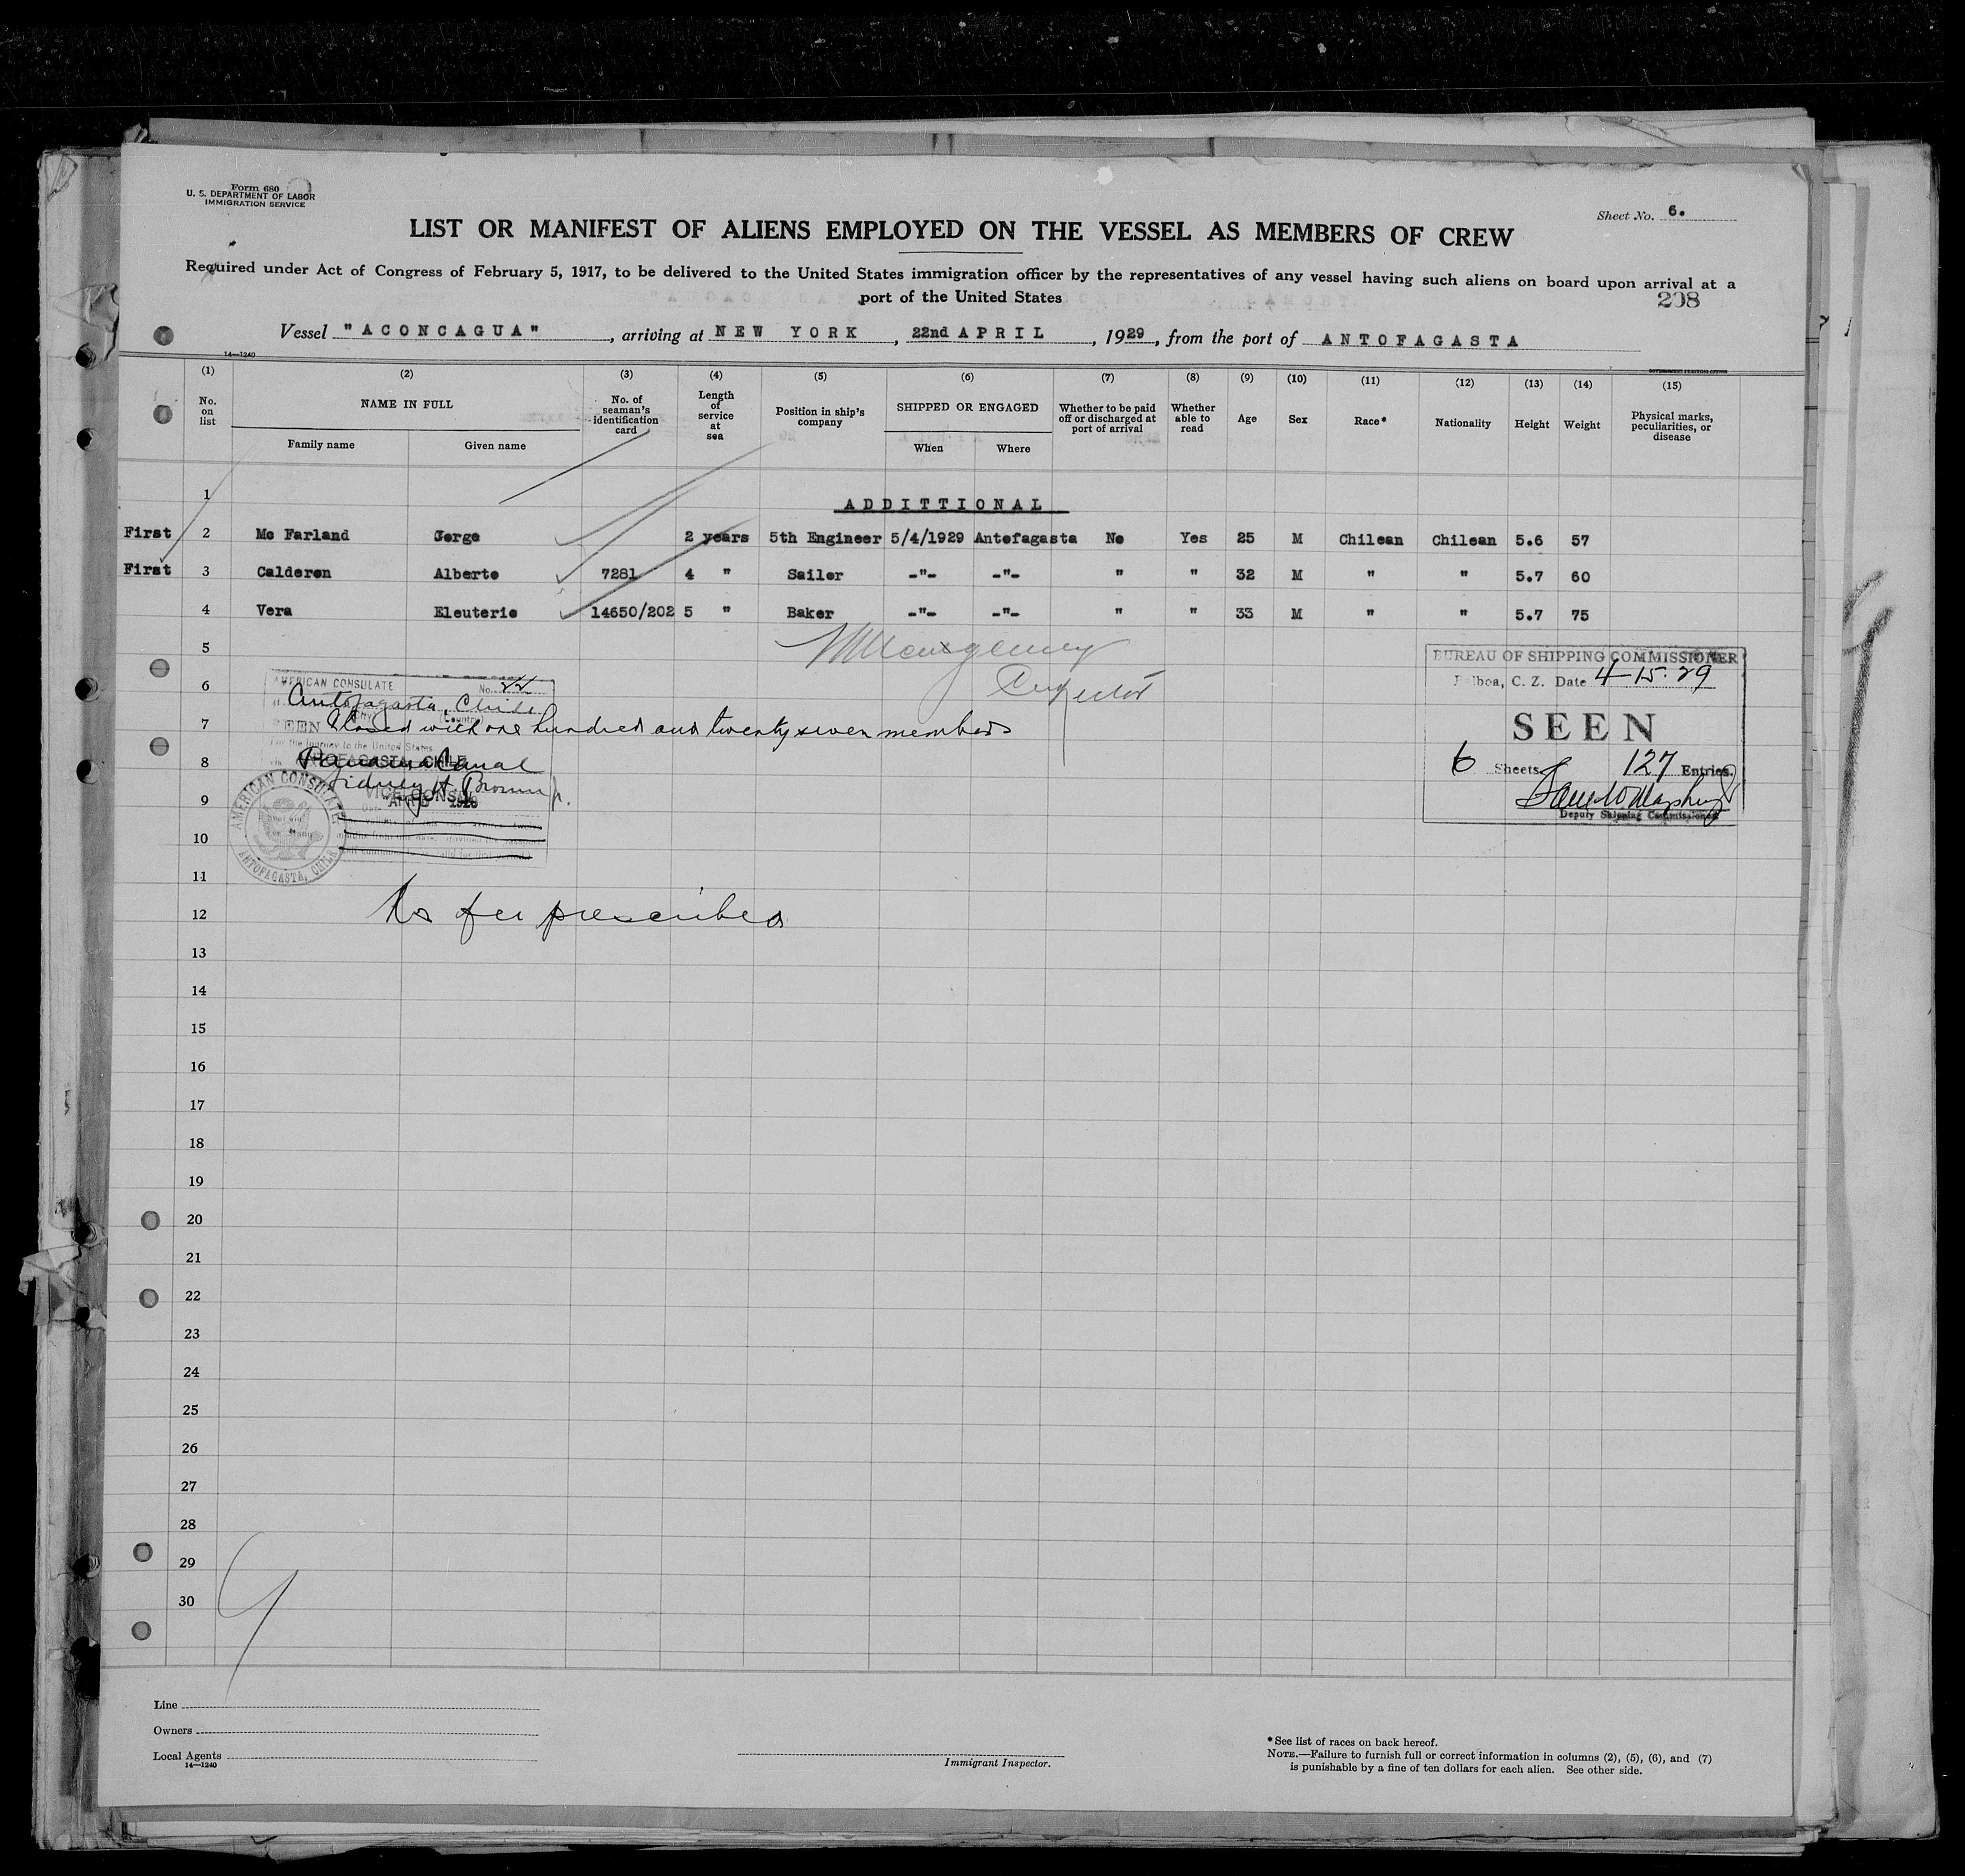 Form 680
U. S. DEPARTMENT OF LABOR
IMMIGRATION SERVICE
Sheet No. 6.
LIST OR MANIFEST OF ALIENS EMPLOYED ON THE VESSEL AS MEMBERS OF CREW
Required under Act of Congress of February 5, 1917, to be delivered to the United States immigration officer by the representatives of any vessel having such aliens on board upon arrival at a
port of the United States
208
Vessel "ACONCAGUA", arriving at NEW YORK, 22nd APRIL, 1929, from the port of ANTOFAGASTA
14—1240
GOVERNMENT PRINTING OFFICE
(1) (2) (3) (4) (5) (6) (7) (8) (9) (10) (11) (12) (13) (14) (15)
No. on list NAME IN FULL Family name Given name No. of seaman's identification card Length of service at sea Position in ship's company SHIPPED OR ENGAGED When Where Whether to be paid off or discharged at port of arrival Whether able to read Age Sex Race* Nationality Height Weight Physical marks, peculiarities, or disease
1 ADDITTIONAL
First 2 Mc Farland Gorge 2 years 5th Engineer 5/4/1929 Antofagasta No Yes 25 M Chilean Chilean 5.6 57
First 3 Calderon Alberto 7281 4 " Sailor -"- -"- " " 32 M " " 5.7 60
4 Vera Eleuterio 14650/202 5 " Baker -"- -"- " " 33 M " " 5.7 75
5
6
7
8
9
10
11
12
13
14
15
16
17
18
19
20
21
22
23
24
25
26
27
28
29
30
AMERICAN CONSULATE
No. 22
Antofagasta, Chile
(Country)
SEEN Closed with one hundred and twenty seven members
For the journey to the United States
via Panama Canal
ANTOFAGASTA, CHILE
Sidney H. Brown Jr.
VICE CONSUL
AMERICAN CONSULATE
ANTOFAGASTA, CHILE
No fee prescribed
BUREAU OF SHIPPING COMMISSIONER
Balboa, C. Z. Date 4-15-29
SEEN
6 Sheets 127 Entries.
Deputy Shipping Commissioner
Line
Owners
Local Agents
14—1240
Immigrant Inspector.
*See list of races on back hereof.
NOTE.—Failure to furnish full or correct information in columns (2), (5), (6), and (7)
is punishable by a fine of ten dollars for each alien. See other side.